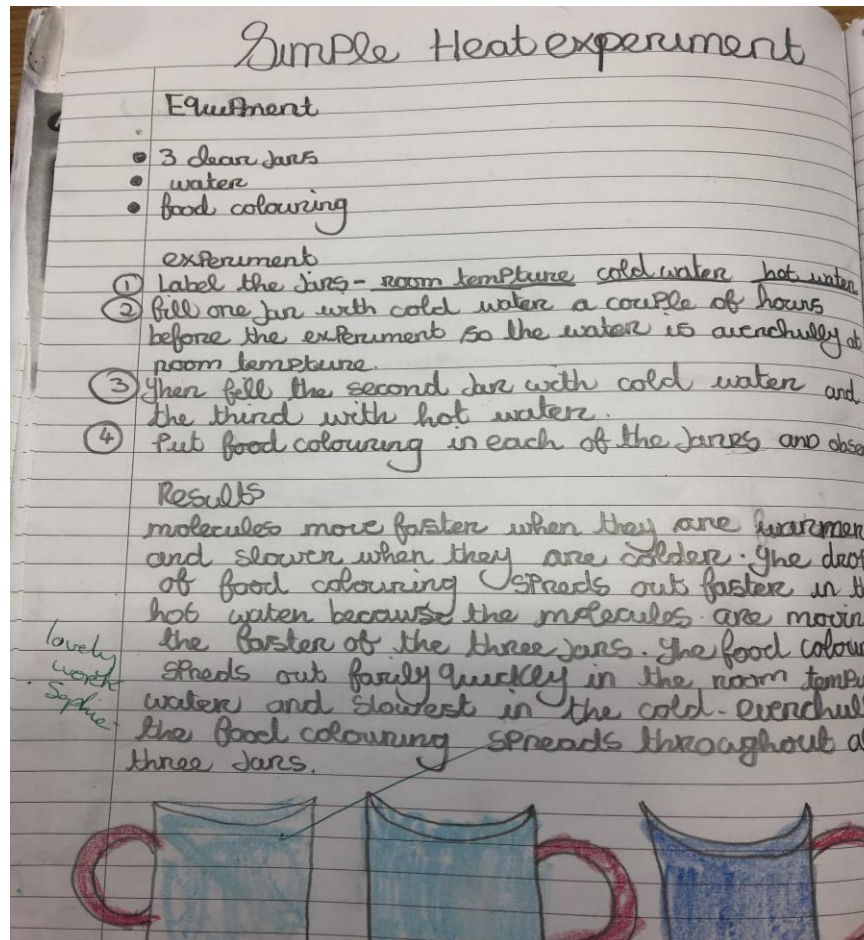 Simple Heat experiment
Equipment
• 3 clear jars
• water
• food colouring
experiment
① Label the jars - room tempture cold water hot water
② fill one jar with cold water a couple of hours
before the experiment so the water is avenchully at
room tempture.
③ Then fill the second jar with cold water and
the third with hot water.
④ Put food colouring in each of the jares and obse
Results
molecules move faster when they are warmer
and slower when they are colder. The drop
of food colouring spreds out faster in th
hot water because the molecules are movin
the faster of the three jars. The food colour
spreds out farily quickey in the room temptu
water and slowest in the cold. evenchull
the food colouring spreads throaghout a
three jars.
lovely
work
Sophie